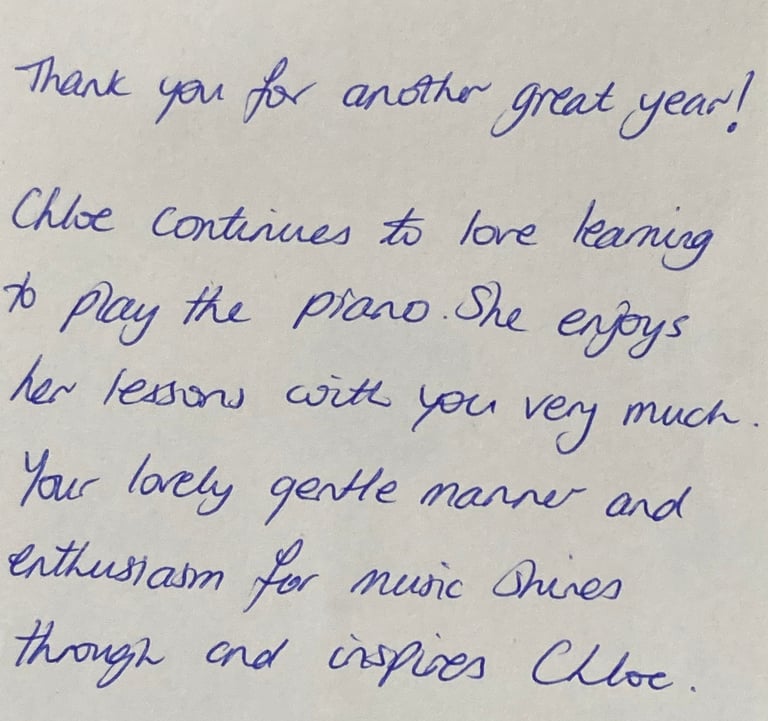 Thank you for another great year!
Chloe continues to love learning
to play the piano. She enjoys
her lessons with you very much.
Your lovely gentle manner and
enthusiasm for music shines
through and inspires Chloe.